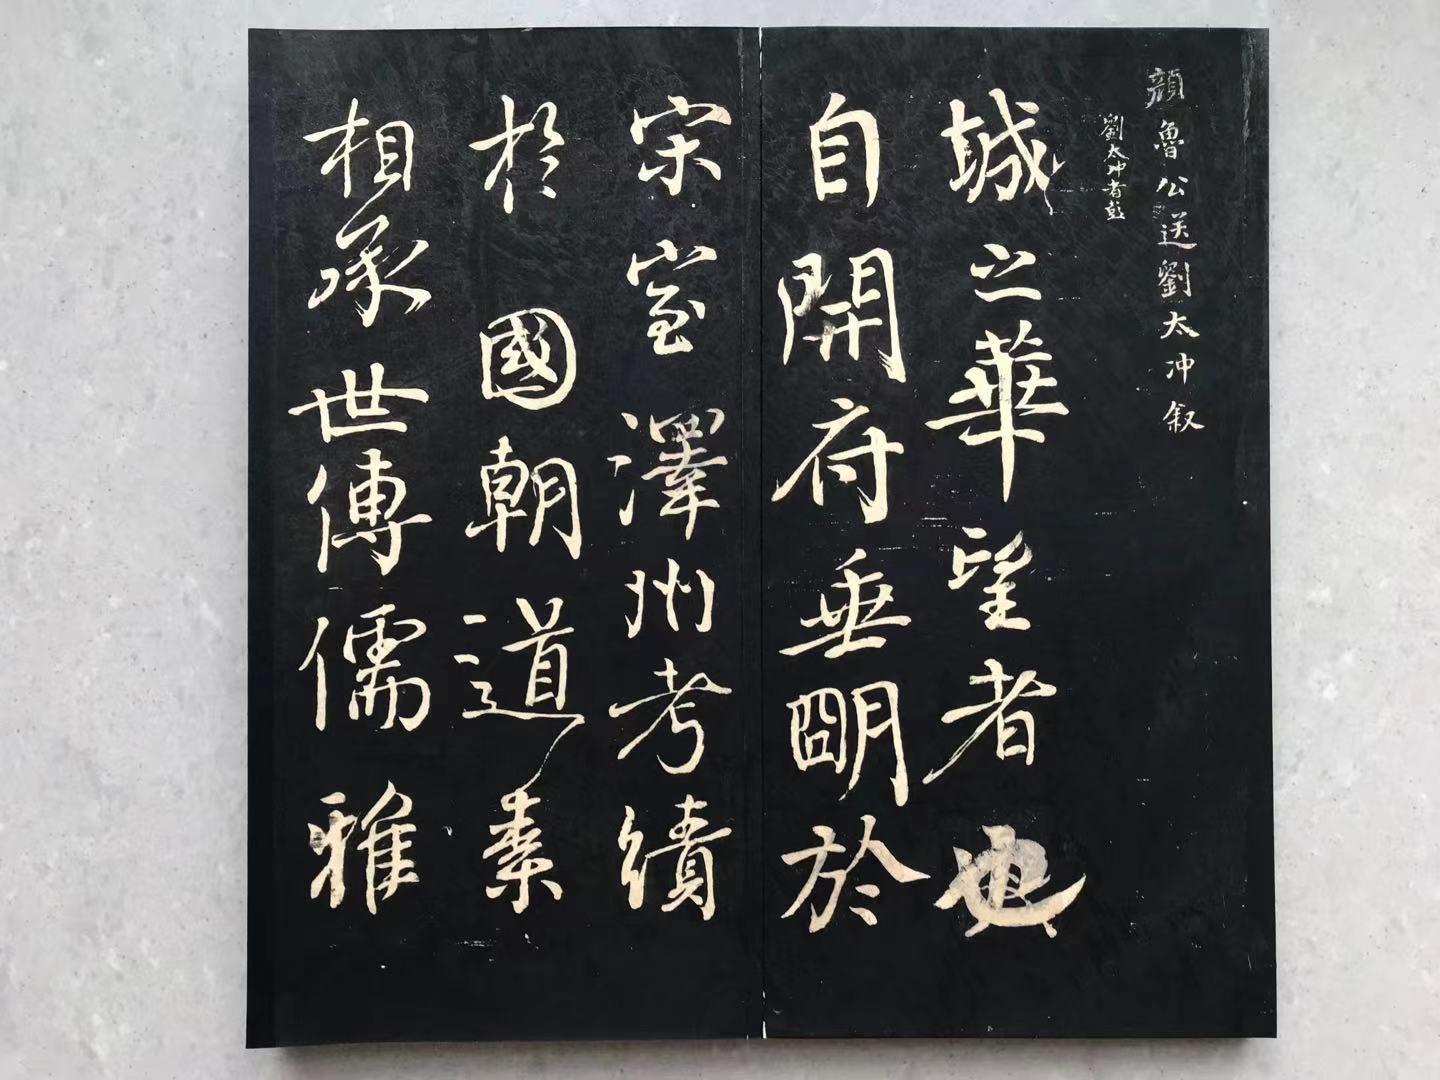 顔魯公送劉太冲叙
劉太冲者彭
城之華望者也
自開府垂明於
宋室澤州考績
於國朝道素
相承世傳儒雅